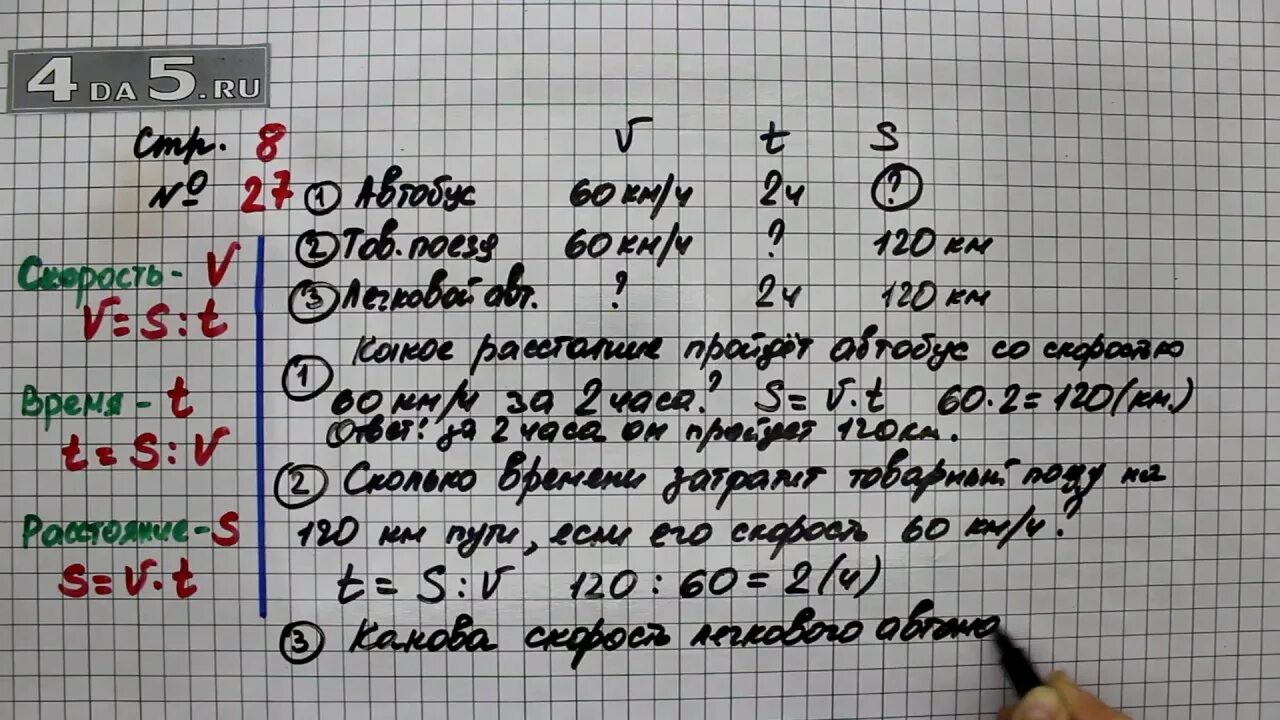 4DA5.RU
Стр. 8
№ 27
Скорость - V
V = S : t
Время - t
t = S : V
Расстояние - S
S = V · t
V t S
① Автобус 60 км/ч 2ч ?
② Тов. поезд 60 км/ч ? 120 км
③ Легковой авт. ? 2ч 120 км
① Какое расстояние пройдёт автобус со скоростью
60 км/ч за 2 часа? S = V · t 60 · 2 = 120 (км.)
Ответ: за 2 часа он пройдет 120 км.
② Сколько времени затратит товарный на
120 км пути, если его скорость 60 км/ч?
t = S : V 120 : 60 = 2 (ч)
③ Какова скорость легкового автомо